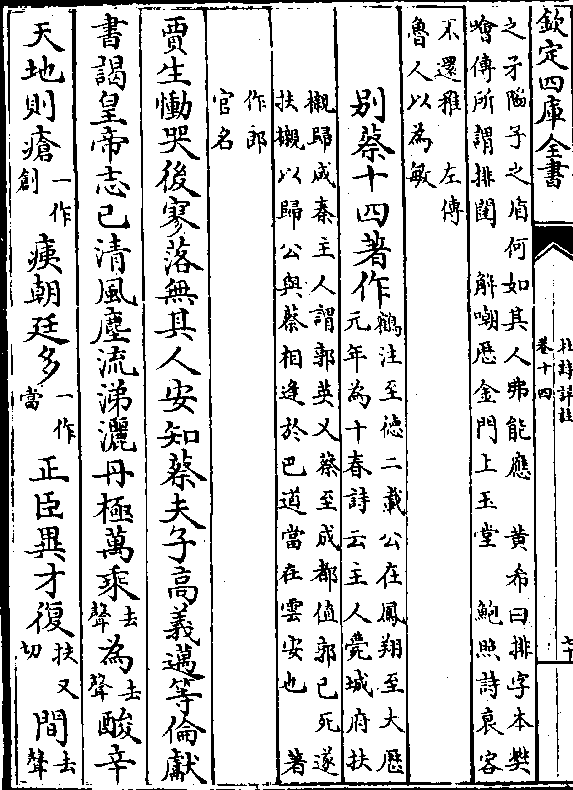 欽定四庫全書
杜詩詳註
卷十四
七十
之矛陷子之盾何如其人弗能應　黃希曰排字本樊
噲傳所謂排闥　解嘲歷金門上玉堂　鮑照詩哀客
不還雅　左傳
魯人以為敏
別蔡十四著作　鶴注至德二載公在鳳翔至大歷
元年為十春詩云主人薨城府扶
櫬歸咸秦主人謂郭英乂蔡至成都值郭已死遂
扶櫬以歸公與蔡相逢於巴道當在雲安也　著
作郎
官名
賈生慟哭後寥落無其人安知蔡夫子高義邁等倫獻
書謁皇帝志已清風塵流涕灑丹極萬乘去聲為去聲酸辛
天地則瘡一作創痍朝廷多一作當正臣異才復扶又切間去聲